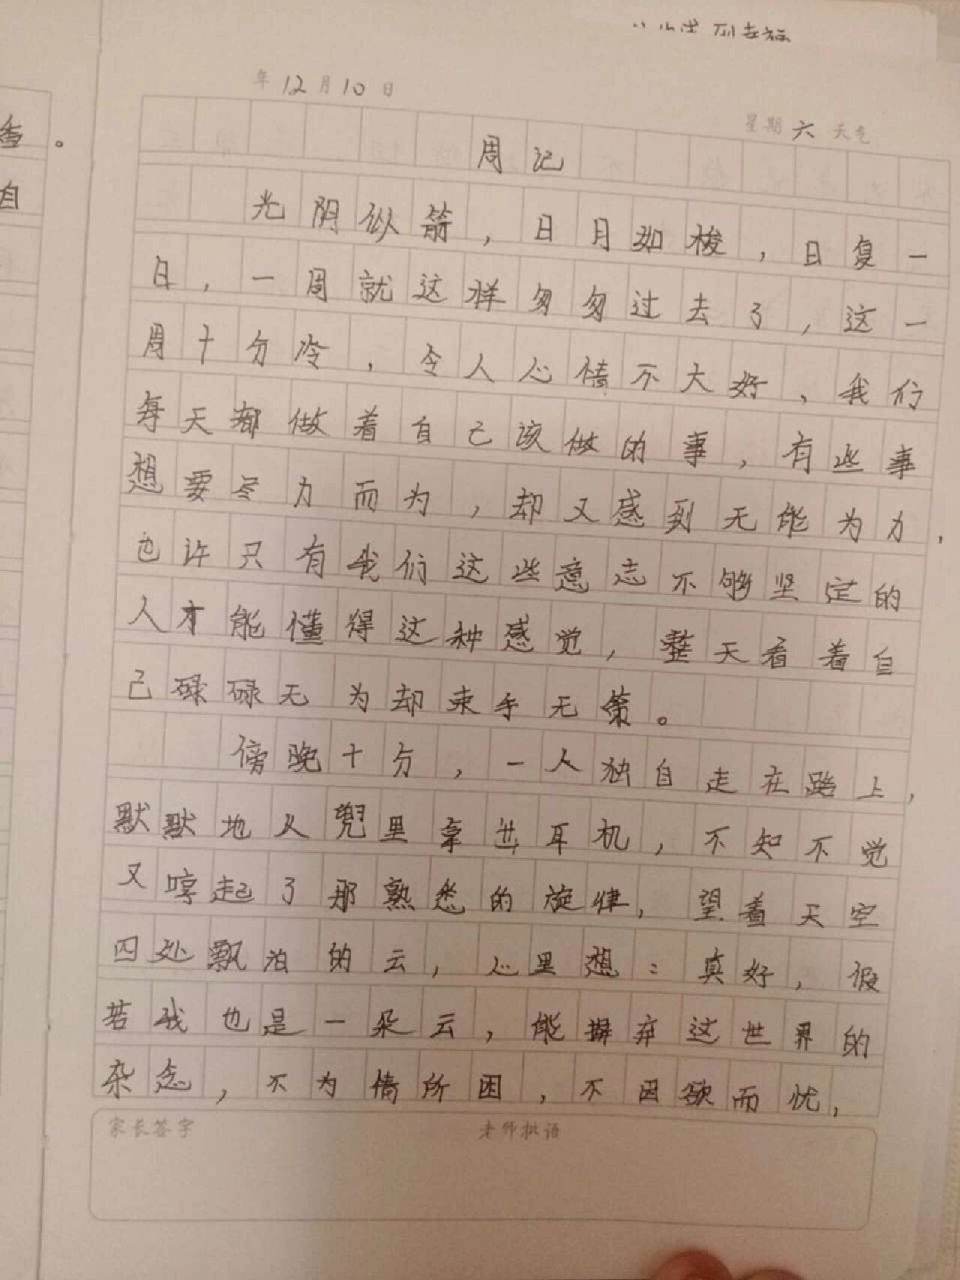 年12月10日
星期六天气
周记
光阴似箭，日月如梭，日复一
日，一周就这样匆匆过去了，这一
周十分冷，令人心情不大好，我们
每天都做着自己该做的事，有些事
想要尽力而为，却又感到无能为力，
也许只有我们这些意志不够坚定的
人才能懂得这种感觉，整天看着自
己碌碌无为却束手无策。
傍晚十分，一人独自走在路上，
默默地从兜里拿出耳机，不知不觉
又哼起了那熟悉的旋律，望着天空
四处飘泊的云，心里想：真好，假
若我也是一朵云，能摒弃这世界的
杂念，不为情所困，不因欲而忧，
家长签字 老师批语
。
自